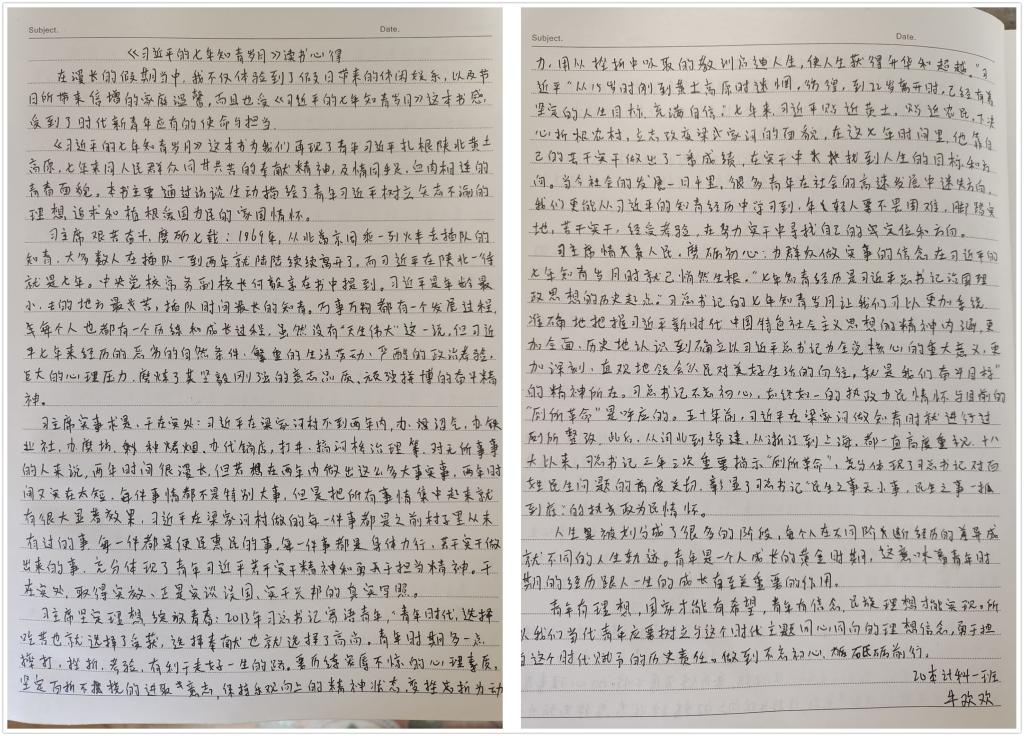 Subject.
Date.
《习近平的七年知青岁月》读书心得
在漫长的假期当中,我不仅体验到了假日带来的休闲娱乐,以及节
日所带来倍增的家庭温馨,而且也受《习近平的七年知青岁月》这本书感,
受到了时代新青年应有的使命与担当.
《习近平的七年知青岁月》这本书为我们再现了青年习近平扎根陕北黄土
高原,七年来同人民群众同甘共苦的奉献精神,及情同手足,血肉相连的
青春面貌。本书主要通过访谈生动描绘了青年习近平树立矢志不渝的
理想,追求和植根爱国为民的家国情怀。
习主席艰苦奋斗,磨砺七载:1969年,从北京同乘一列火车去插队的
知青,大多数人在插队一到两年就陆陆续续离开了,而习近平在陕北一待
就是七年。中央党校常务副校长何毅亭在书中提到。习近平是年龄最
小,去的地方最苦,插队时间最长的知青。万事万物都有一个发展过程,
每个人也都有一个历练和成长过程,虽然没有“天生伟大”这一说,但习近
平七年来经历的恶劣的自然条件,繁重的生活劳动,严酷的政治考验,
巨大的心理压力,磨炼了其坚毅刚强的意志品质、顽强拼搏的奋斗精
神。
习主席实事求是,干在实处:习近平在梁家河村不到两年内,办沼气,办铁
业社,办磨坊,种烤烟,办代销店,打井,搞河桥治理等,对无所事事
的人来说,两年时间很漫长,但若想在两年内做出这么多大事实事,两年时
间又实在太短,每件事情都不是特别大事,但是把所有事情集中起来就
有很大显著效果,习近平在梁家河村做的每一件事都是之前村子里从未
有过的事,每一件都是便民惠民的事,每一件事都是身体力行,苦干实干做
出来的事,充分体现了青年习近平苦干实干精神和勇于担当精神。干
在实处,取得实效,正是实谈误国,实干兴邦的真实写照。
习主席坚实理想,绽放青春:2013年习总书记寄语青年,“青年时代,选择
吃苦也就选择了收获,选择奉献也就选择了高尚。青年时期多一点
摔打,挫折,考验,有利于走好一生的路。要历练宠辱不惊的心理素质,
坚定百折不挠的进取意志,保持乐观向上的精神状态,变挫折为动
Subject.
Date.
力,用从挫折中吸取的教训启迪人生,使人生获得升华和超越。”习
近平“从15岁时刚到黄土高原时迷惘,彷徨,到22岁离开时,已经有着
坚定的人生目标,充满自信。”七年来,习近平贴近黄土,贴近农民,下决
心扎根农村,立志改变梁家河的面貌,在这七年时间里,他靠自
己的苦干实干做出了一番成绩,在实干中找到人生的目标和方
向。当今社会的发展一日千里,很多青年在社会的高速发展中迷失方向,
我们更能从习近平的知青经历中学习到,年轻人要不畏困难,脚踏实
地,苦干实干,经受考验,在努力实干中寻找自己的定位和方向。
习主席情关人民,磨砺初心:为群众做实事的信念在习近平的
七年知青岁月时就已悄然生根。“七年知青经历是习近平总书记治国理
政思想的历史起点。”习总书记的七年知青岁月让我们可以更加系统
准确地把握习近平新时代中国特色社会主义思想的精神内涵,更
加全面,历史地认识到确立以习近平总书记为全党核心的重大意义,更
加深刻,直观地领会“人民对美好生活的向往,就是我们奋斗目标”
的精神所在。习总书记不忘初心,始终如一的执政为民情怀与目前的
“厕所革命”是呼应的。五十年前,习近平在梁家河做知青时就进行过
厕所整改,此后,从河北到福建,从浙江到上海,都一直高度重视,十八
大以来,习总书记三年三次重要指示“厕所革命”,充分体现了习总书记对百
姓民生问题的高度关切,彰显了习总书记“民生之事无小事,民生之事一抓
到底”的执政为民情怀。
人生要被划分成了很多的阶段,每个人在不同阶段所经历的差异成
就不同的人生轨迹。青年是一个人成长的黄金时期,这意味着青年时
期的经历跟人一生的成长有至关重要的作用。
青年有理想,国家才能有希望,青年有信念,民族理想才能实现。所
以我们当代青年应要树立与这个时代主题同心同向的理想信念,勇于担
当这个时代赋予的历史责任。做到不忘初心,砥砺前行。
20本计科一班
牛欢欢